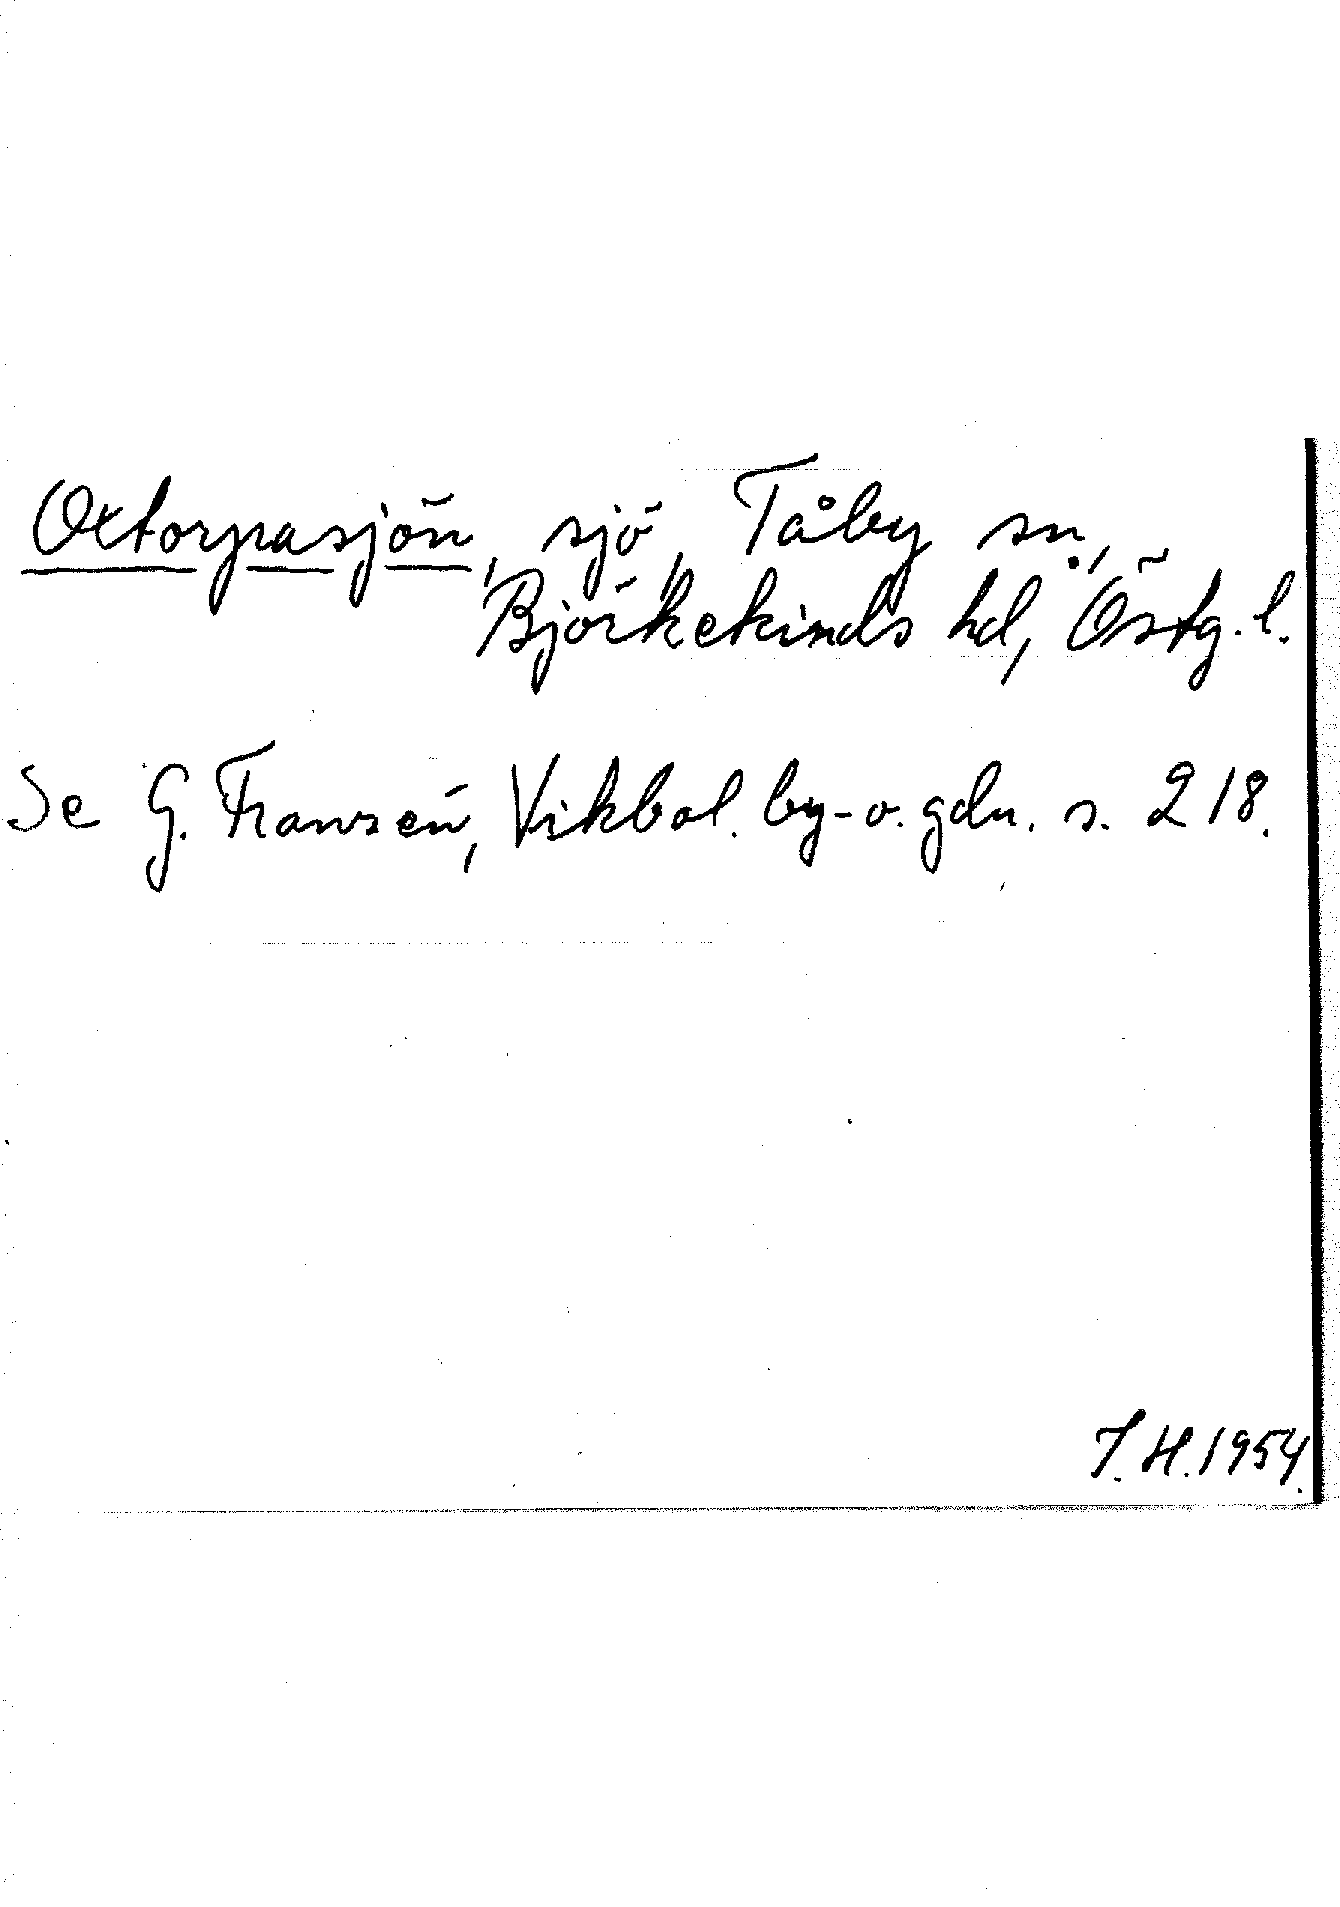 Oxtorpasjön, sjö, Tåby sn.,
Björkekinds hd, Östg. l.
Se G. Franzén, Vikbol. by- o. gdn. s. 218.
J. H. 1954.